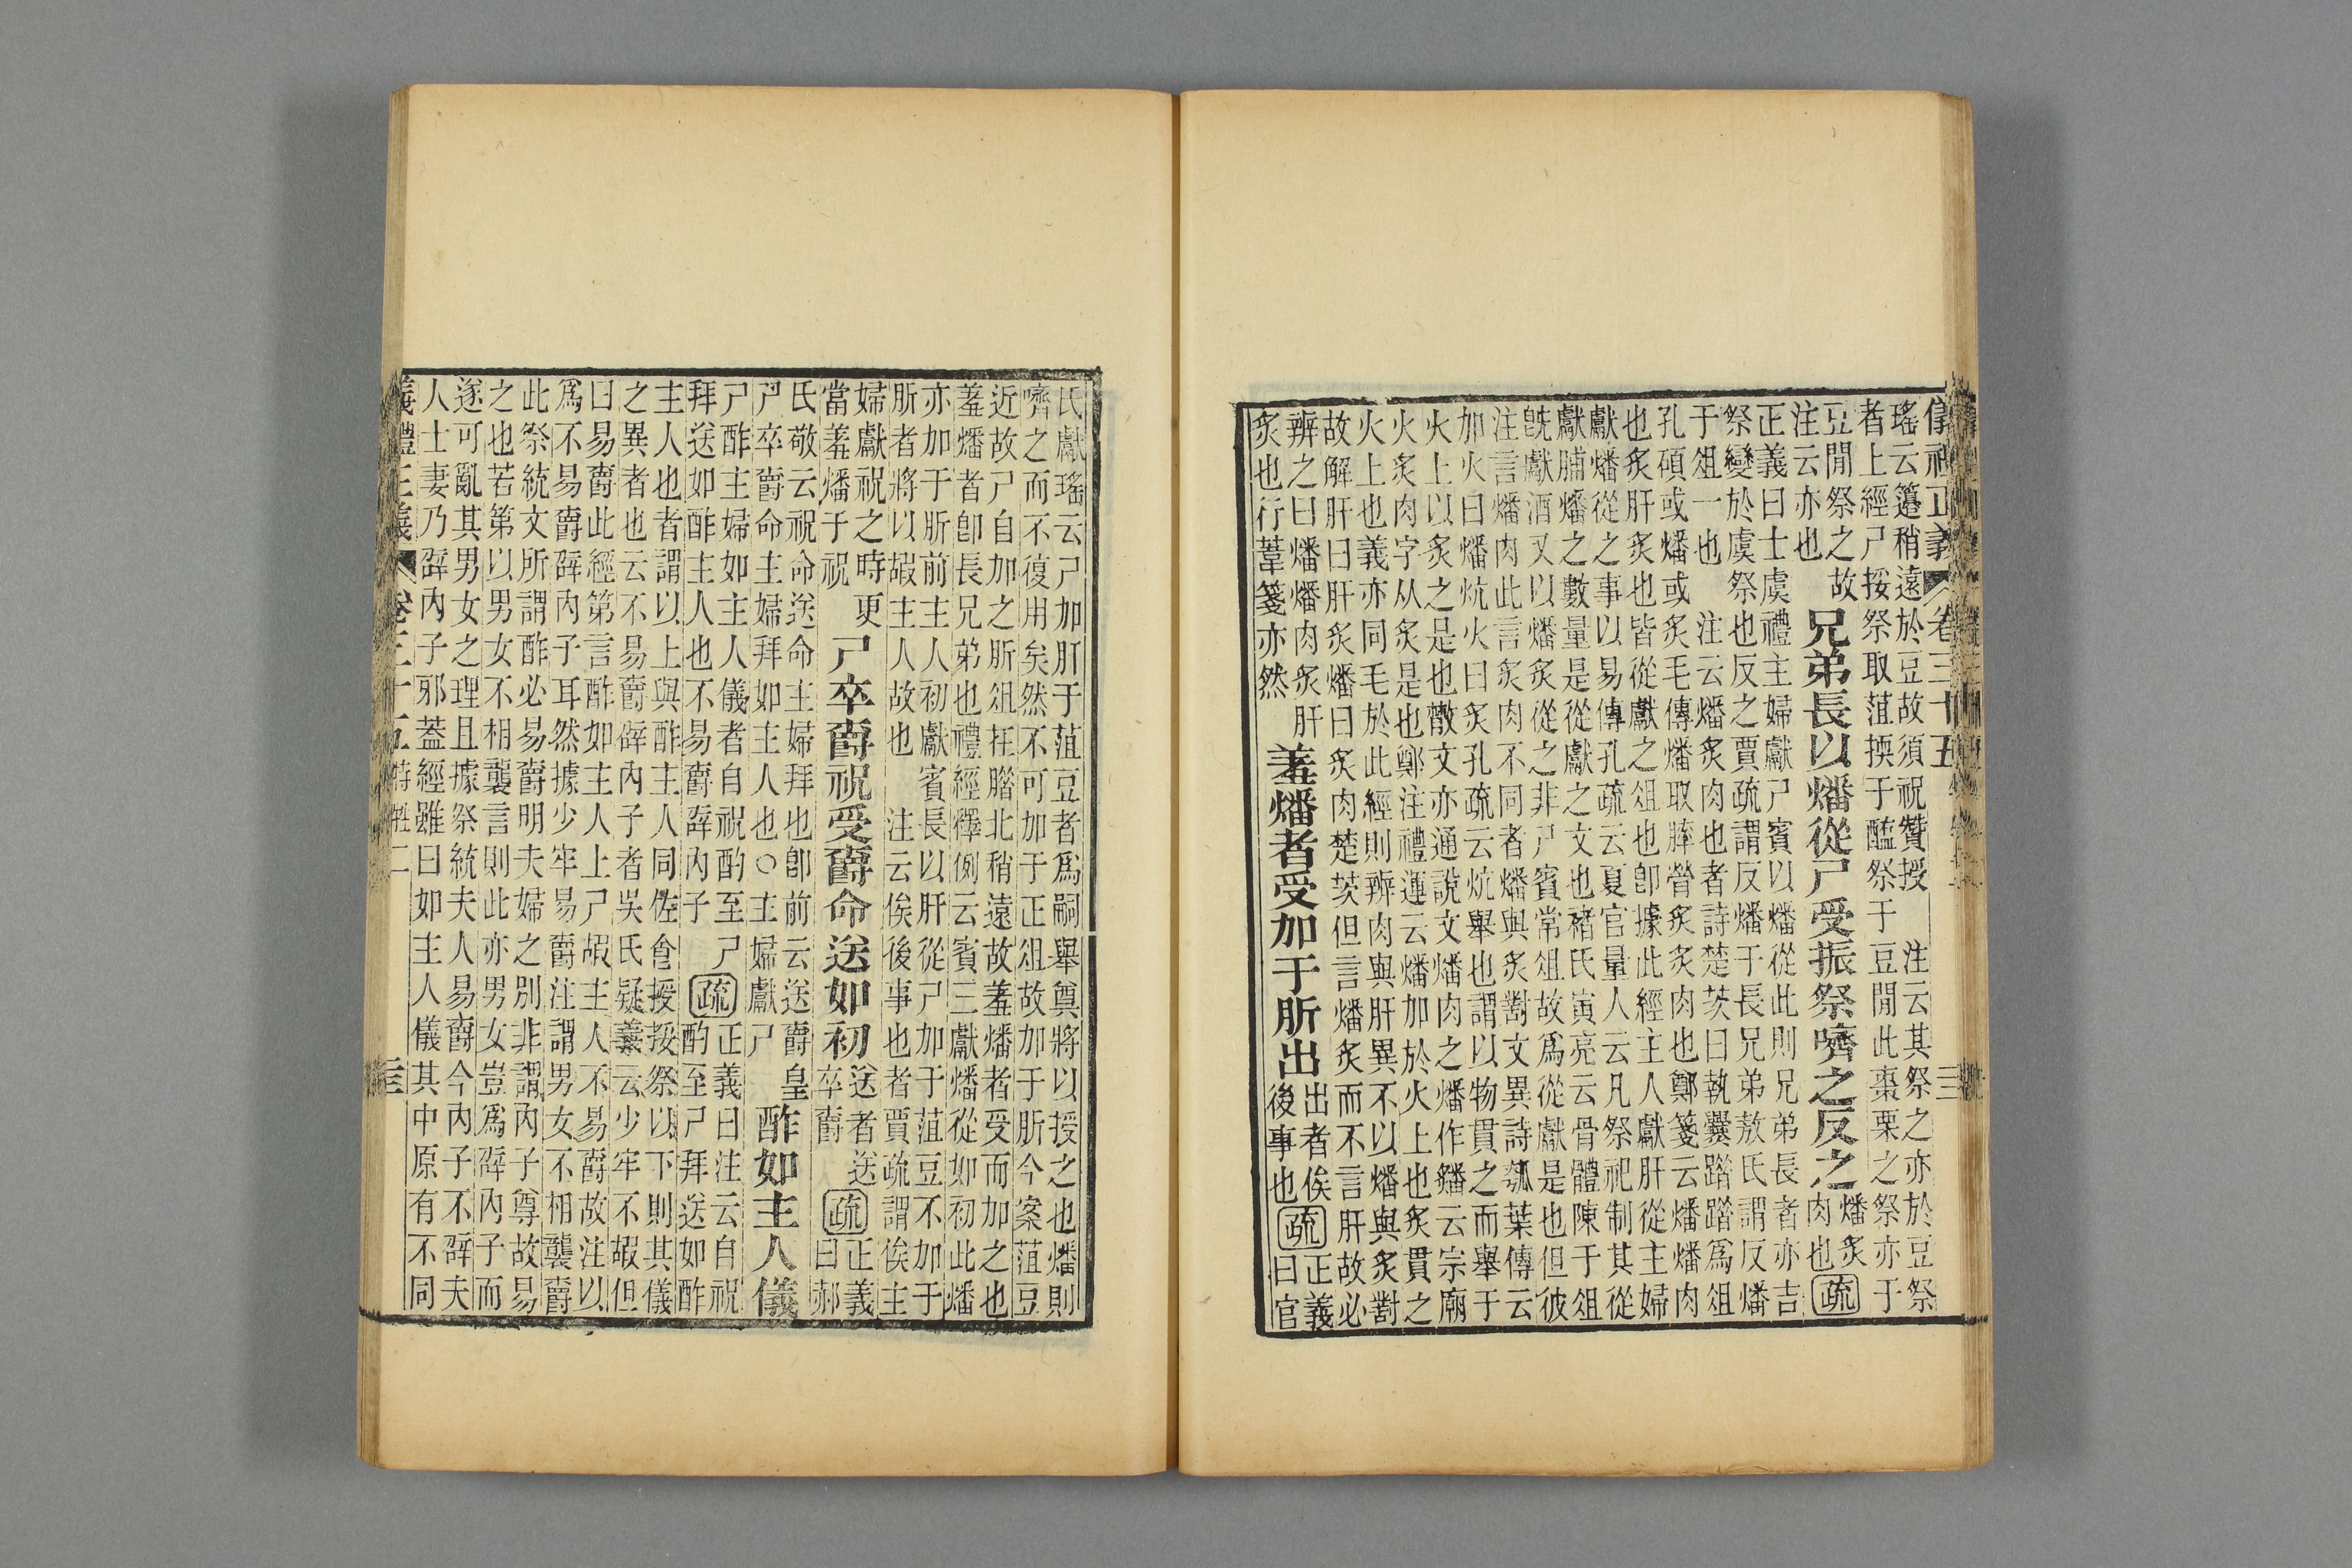 儀禮正義 卷三十五
瑤云籩稍遠於豆故須祝贊授 注云其祭之亦於豆祭
者上經尸挼祭取菹㨎于醢祭于豆閒此棗栗之祭亦于
豆閒祭之故
注云亦也
兄弟長以燔從尸受振祭嚌之反之
燔炙
肉也
疏
正義曰士虞禮主婦獻尸賓以燔從此則兄弟長者亦吉
祭變於虞祭也反之賈疏謂反燔于長兄弟敖氏謂反燔
于俎一也 注云燔炙肉也者詩楚茨曰執爨踖踖爲俎
孔碩或燔或炙毛傳燔取膟膋炙炙肉也鄭箋云燔燔肉
也炙肝炙也皆從獻之俎也卽據此經主人獻肝從主婦
獻燔從之事以易傳孔疏云夏官量人云凡祭祀制其從
獻脯燔之數量是從獻之文也褚氏寅亮云骨體陳于俎
旣獻酒又以燔炙從之非尸賓常俎故爲從獻是也但彼
注言燔肉此言炙肉不同者燔與炙對文異詩瓠葉傳云
加火曰燔炕火曰炙孔疏云炕舉也謂以物貫之而舉于
火上以炙之是也散文亦通說文燔肉之燔作䊩云宗廟
火炙肉字从炙是也鄭注禮運云燔加於火上也炙貫之
火上也義亦同毛於此經則辨肉與肝異不以燔與炙對
故解肝曰肝炙燔曰炙肉楚茨但言燔炙而不言肝故必
辨之曰燔燔肉炙肝
炙也行葦箋亦然
羞燔者受加于肵出
出者俟
後事也
疏
正義
曰官
氏獻瑤云尸加肝于菹豆者爲嗣舉奠將以授之也燔則
嚌之而不復用矣然不可加于正俎故加于肵今案菹豆
近故尸自加之肵俎在腊北稍遠故羞燔者受而加之也
羞燔者卽長兄弟也禮經釋例云賓三獻燔從如初此燔
亦加于肵前主人初獻賓長以肝從尸加于菹豆不加于
肵者將以嘏主人故也 注云俟後事也者賈疏謂俟主
婦獻祝之時更
當羞燔于祝
尸卒爵祝受爵命送如初
送者送
卒爵
疏
正義
曰郝
氏敬云祝命送命主婦拜也卽前云送爵皇
尸卒爵命主婦拜如主人也○主婦獻尸
酢如主人儀
尸酢主婦如主人儀者自祝酌至尸
拜送如酢主人也不易爵辟內子
疏
正義曰注云自祝
酌至尸拜送如酢
主人也者謂以上與酢主人同佐食授挼祭以下則其儀
之異者也云不易爵辟內子者吳氏疑義云少牢不嘏但
曰易爵此經第言酢如主人上尸嘏主人不易爵故注以
爲不易爵辟內子耳然據少牢易爵注謂男女不相襲爵
此祭統文所謂酢必易爵明夫婦之別非謂內子尊故易
之也若第以男女不相襲言則此亦男女豈爲辟內子而
遂可亂其男女之理且據祭統夫人易爵今內子不辟夫
人士妻乃辟內子邪蓋經雖曰如主人儀其中原有不同
儀禮正義 卷三十五 特牲二 三